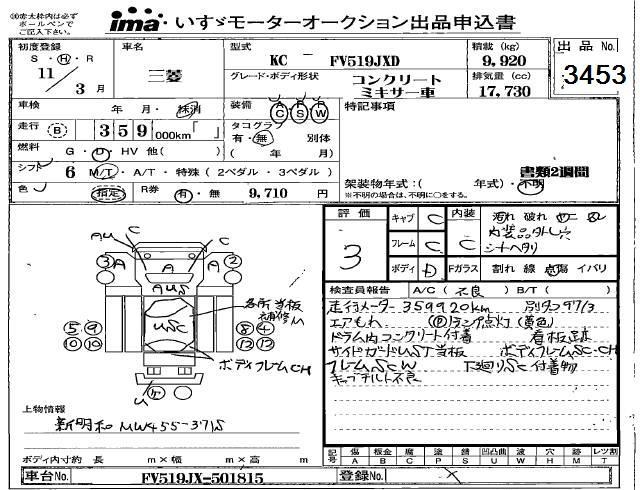 ※赤太枠内は必ず
ボールペンで
ご記入下さい。
ima・いすゞモーターオークション出品申込書
初度登録
S・H・R
11年 3月
車名
三菱
型式
KC - FV519JXD
積載 (kg)
9,920
出品No.
3453
グレード・ボディ形状
コンクリート
ミキサー車
排気量 (cc)
17,730
車検 年・月・抹消
装備 A C P S R W
特記事項
走行 B 359 000km「 」
タコグラフ
有・無 別体
( 年 月)
燃料 G・D・HV 他( )
シフト 6 M/T・A/T・特殊 (2ペダル・3ペダル)
書類2週間
架装物年式:( 年式)・不明
※不明の場合は、不明に○をする。
色 指定
R券 有・無 9,710 円
評価
3
キャブ C
フレーム C
ボディ D
内装
C
汚れ 破れ
内装品外し穴
シートヘタリ
Fガラス 割れ 線 点傷 イバリ
検査員報告 A/C (不良) B/T ( )
走行メーター359920km 別タコ97/3
エアもれ Pランプ点灯(黄色)
ドラム内コンクリート付着 看板
サイドガードUST当板 ボディフレームSC・CH
フレームSCW 下廻りSC付着物
キャブチルト不良
AU C C
3 A A A 2
AUS
USC
各所当板
補修M
5 9 8 4
10 10 12 12
ボディフレームCH
U
上物情報
新明和 MW455-371S
ボディ内寸約 長 m×幅 m×高 m
記号 傷A 板金B 腐C 塗P 錆S 凹凸曲U 波W 穴H 残M レツ割T
車台No. FV519JX-501815
登録No.